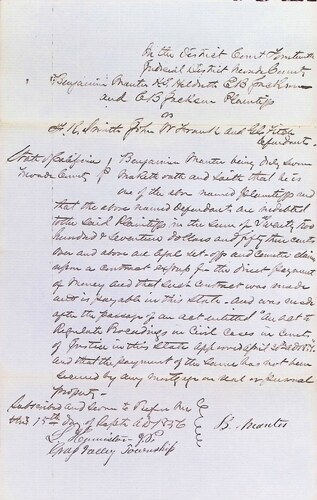 In the District Court Fourteenth
Judicial District Nevada County
Benjamin Manter H. Hildreth C B Jackson
and C B Jackson Plaintiffs
vs
H. K. Smith John W Frank and Geo Fitch
Defendants
State of California
Nevada County
Benjamin Manter being duly sworn
maketh oath and saith that he is
one of the above named plaintiffs and
that the above named Defendants are indebted
to the said Plaintiffs in the sum of Twenty two
hundred & Seventeen dollars and fifty three cents
over and above all legal set-offs and counter claims
upon a contract express for the direct payment
of money and that such contract was made
and is payable in this State and was made
after the passage of an act entitled "An act to
Regulate Proceedings in Civil Cases in Courts
of Justice in this State approved April 29th A D 1851
and that the payment of the same has not been
secured by any mortgage on real or personal
property.
Subscribed and sworn to before me
this 15th day of Sept A D 1856
B. Manter
J.P.
Grass Valley Township